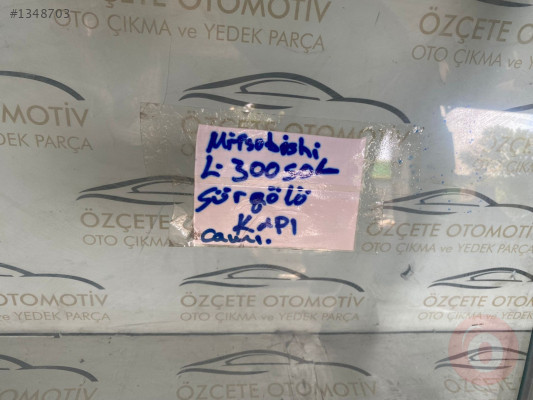 #1348703
ÖZÇETE OTOMOTİV
OTO ÇIKMA ve YEDEK PARÇA
OTOMOTİV
YEDEK PARÇA
Mitsobishi
L-300 SOL
Sürgölü
KAPI
Camı.
ÖZÇETE OTOMOTİV
OTO ÇIKMA ve YEDEK PARÇA
OTOMOTİV
ve YEDEK PARÇA
ÖZÇETE OTOMOTİV
OTO ÇIKMA ve YEDEK PARÇA
ÖZÇETE OTOMOTİV
OTO ÇIKMA ve YEDEK PARÇA
ÖZÇETE OTOMOTİV
OTO ÇIKMA ve YEDEK PARÇA